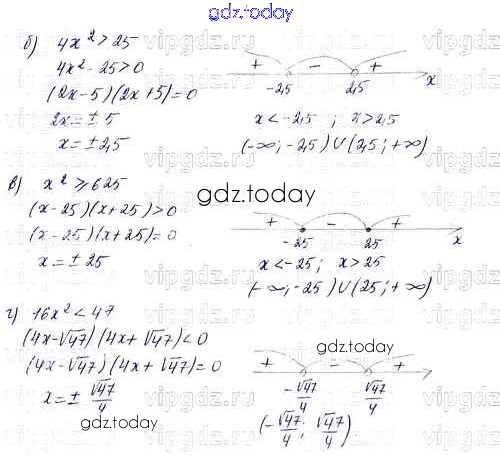 gdz.today
б) 4x² > 25
4x² - 25 > 0
(2x-5)(2x+5)=0
2x = ± 5
x = ± 2,5
+ - +
-2,5 2,5 x
x < -2,5 ; x > 2,5
(-∞; -2,5) ∪ (2,5; +∞)
в) x² ⩾ 625
(x-25)(x+25)>0
(x-25)(x+25)=0
x = ± 25
gdz.today
+ - +
-25 25 x
x < -25; x > 25
(-∞; -25) ∪ (25; +∞)
г) 16x² < 47
(4x-√47)(4x+√47)<0
(4x-√47)(4x+√47)=0
x = ± √47/4
gdz.today
gdz.today
+ - +
-√47/4 √47/4
(-√47/4; √47/4)
vipgdz.ru